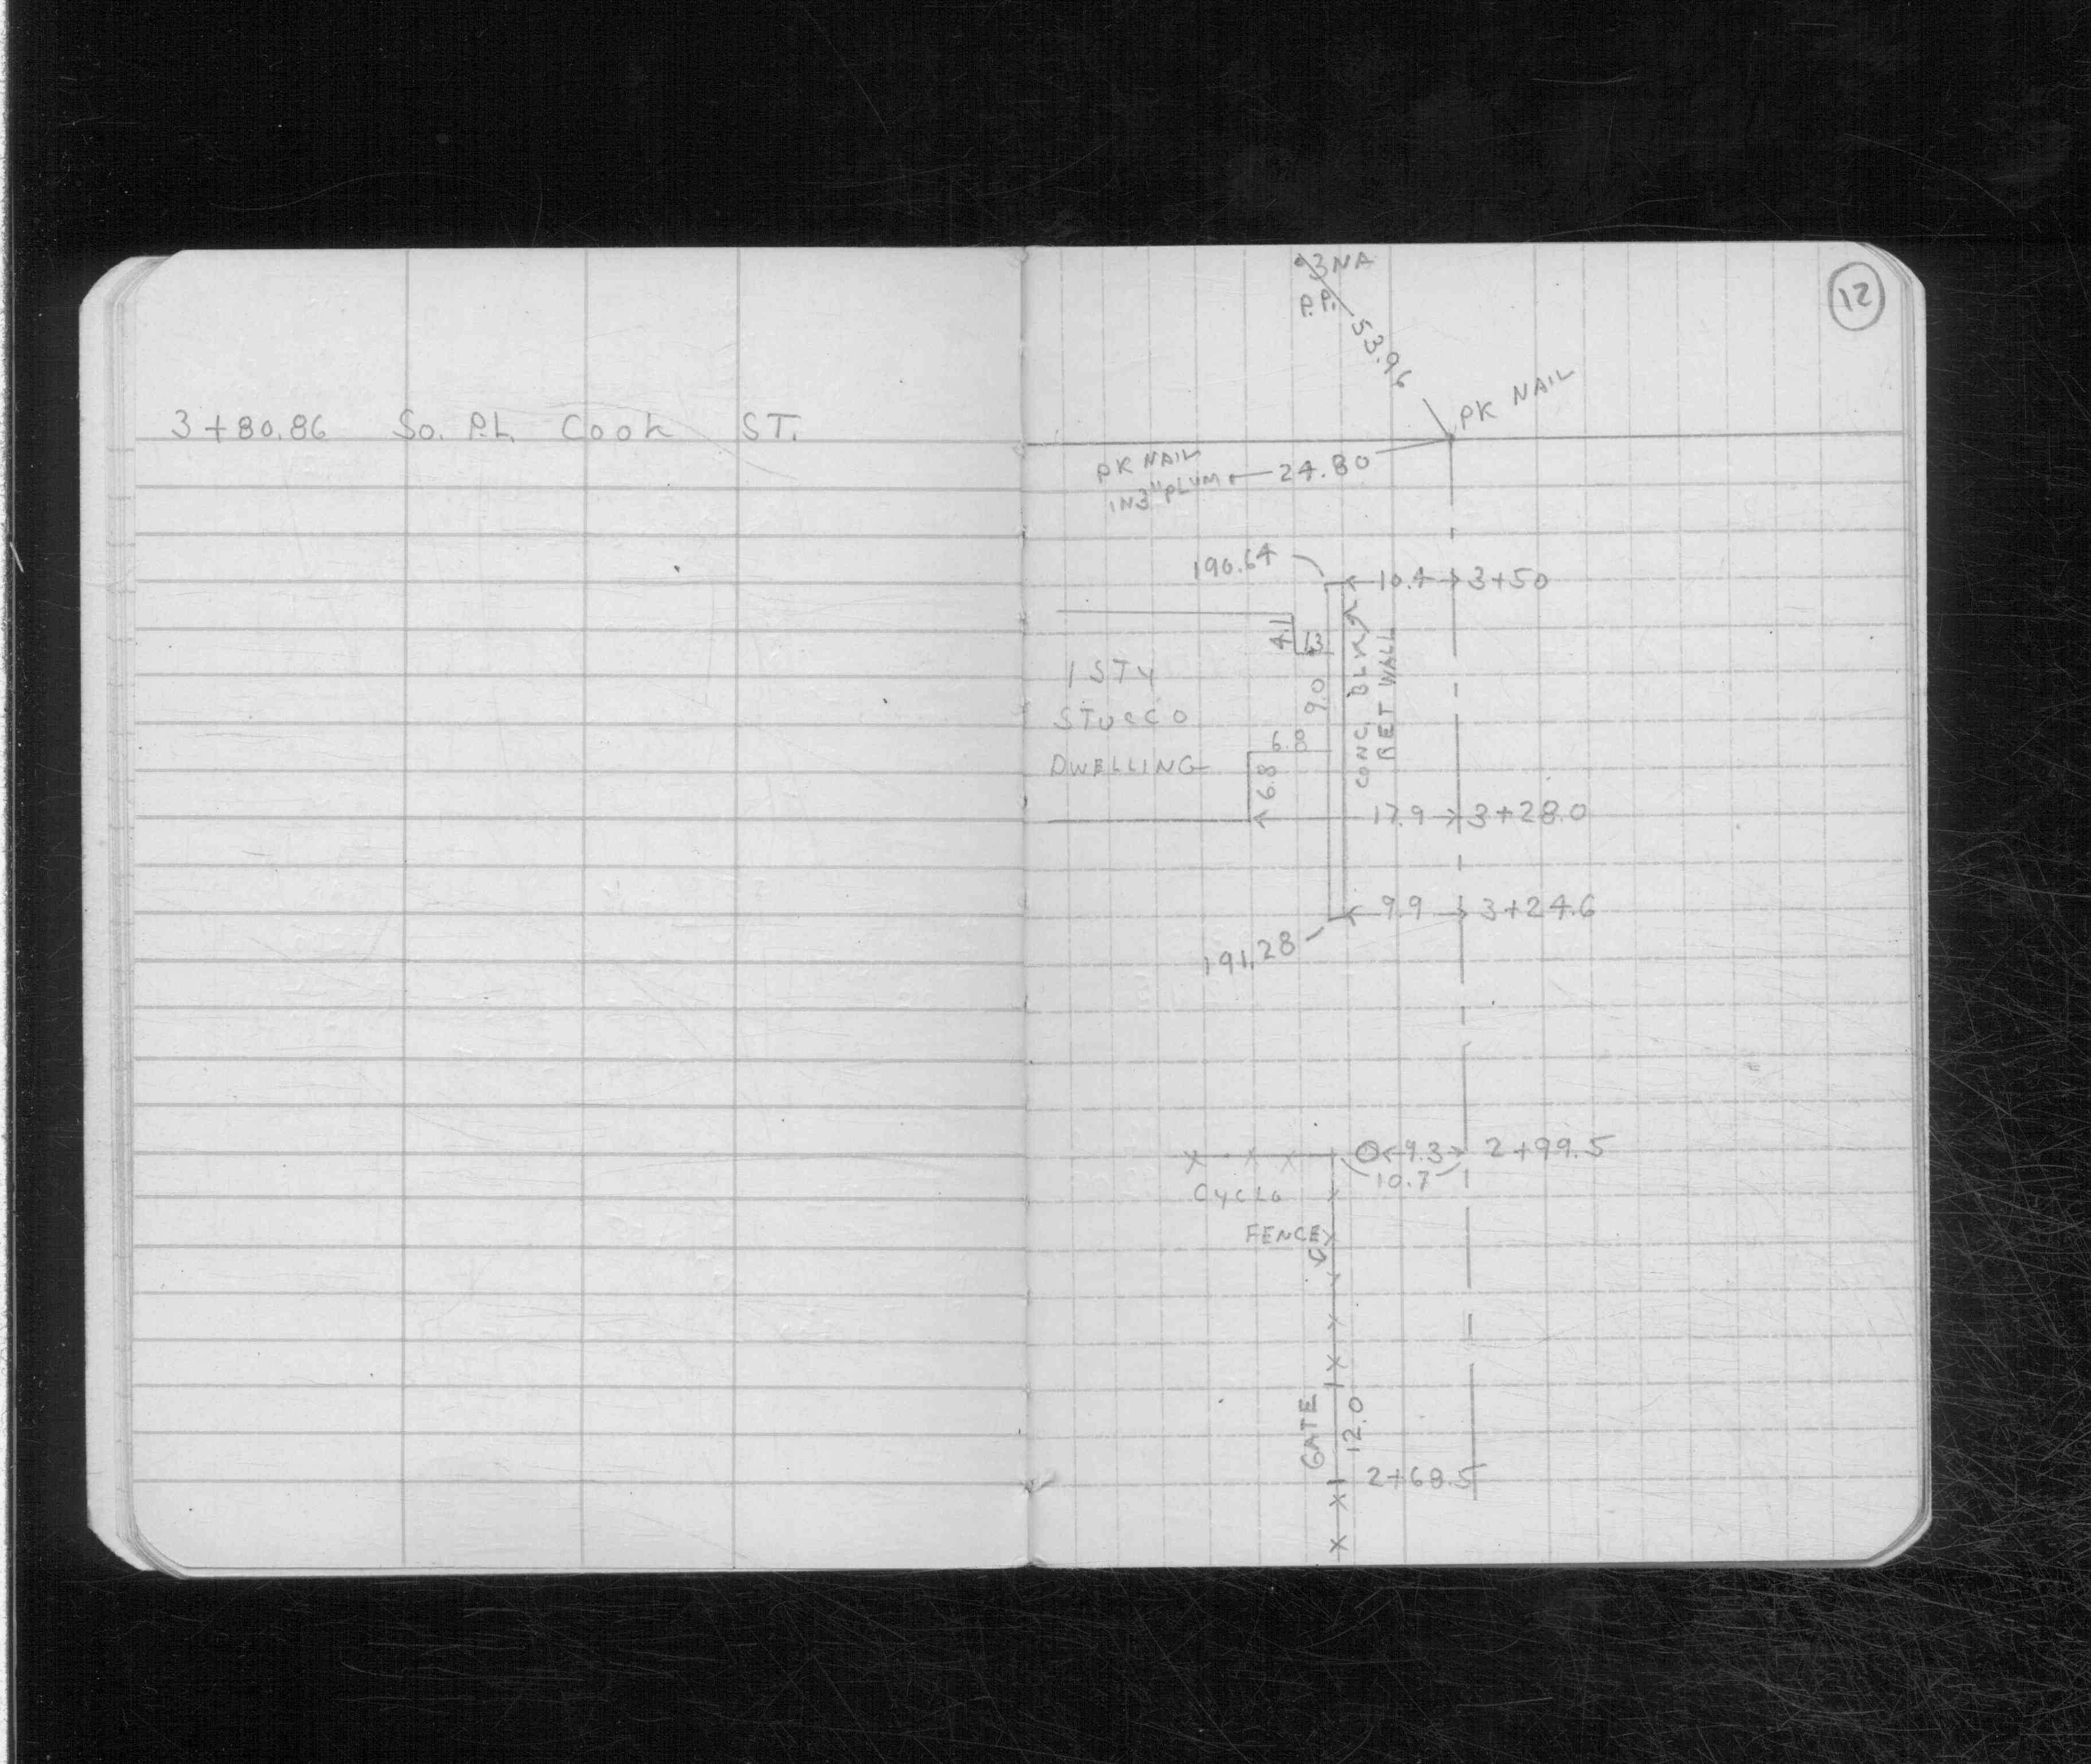 12
3NA
P.P.
53.96
PK NAIL
3+80.86 So. P.L. Cook ST.
24.80
PK NAIL
IN 3" PLUM
190.64
10.4 3+50
4.1
13
1 STY
STUCCO
DWELLING
9.0
CONC. BLK
RET WALL
6.8
6.8
17.9 3+28.0
9.9 3+24.6
191.28
9.3 2+99.5
10.7
CYCLO
FENCE
GATE
12.0
2+68.5